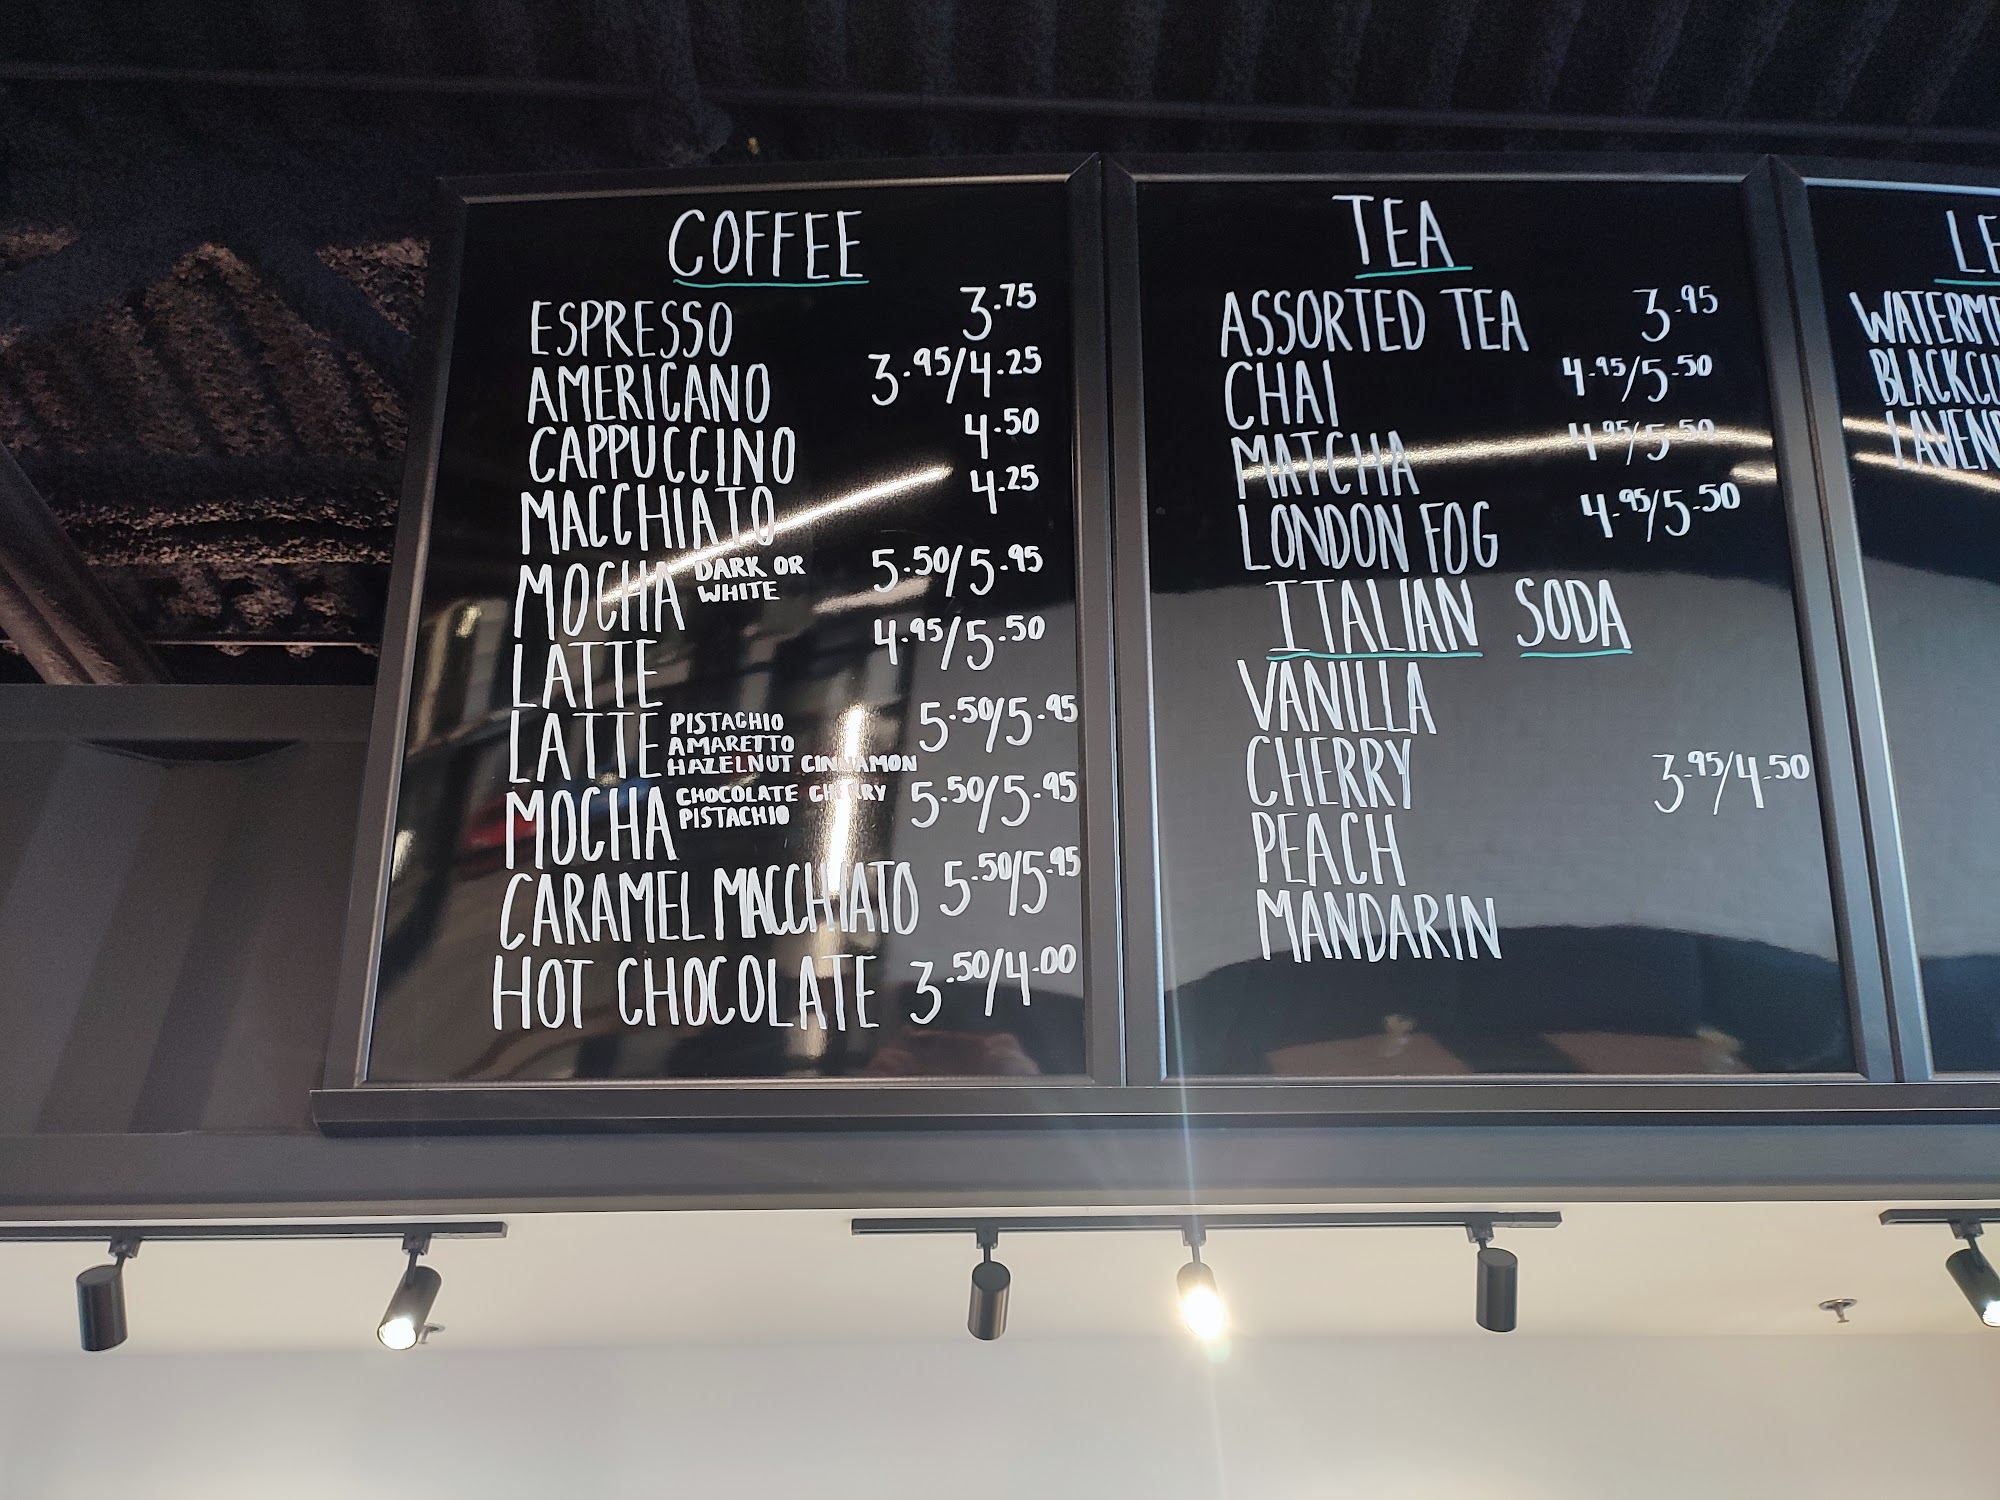 COFFEE
ESPRESSO 3.75
AMERICANO 3.95/4.25
CAPPUCCINO 4.50
MACCHIATO 4.25
MOCHA DARK OR WHITE 5.50/5.95
LATTE 4.95/5.50
LATTE PISTACHIO AMARETTO HAZELNUT CINNAMON 5.50/5.95
MOCHA CHOCOLATE CHERRY PISTACHIO 5.50/5.95
CARAMEL MACCHIATO 5.50/5.95
HOT CHOCOLATE 3.50/4.00
TEA
ASSORTED TEA 3.95
CHAI 4.95/5.50
MATCHA 4.95/5.50
LONDON FOG 4.95/5.50
ITALIAN SODA
VANILLA
CHERRY 3.95/4.50
PEACH
MANDARIN